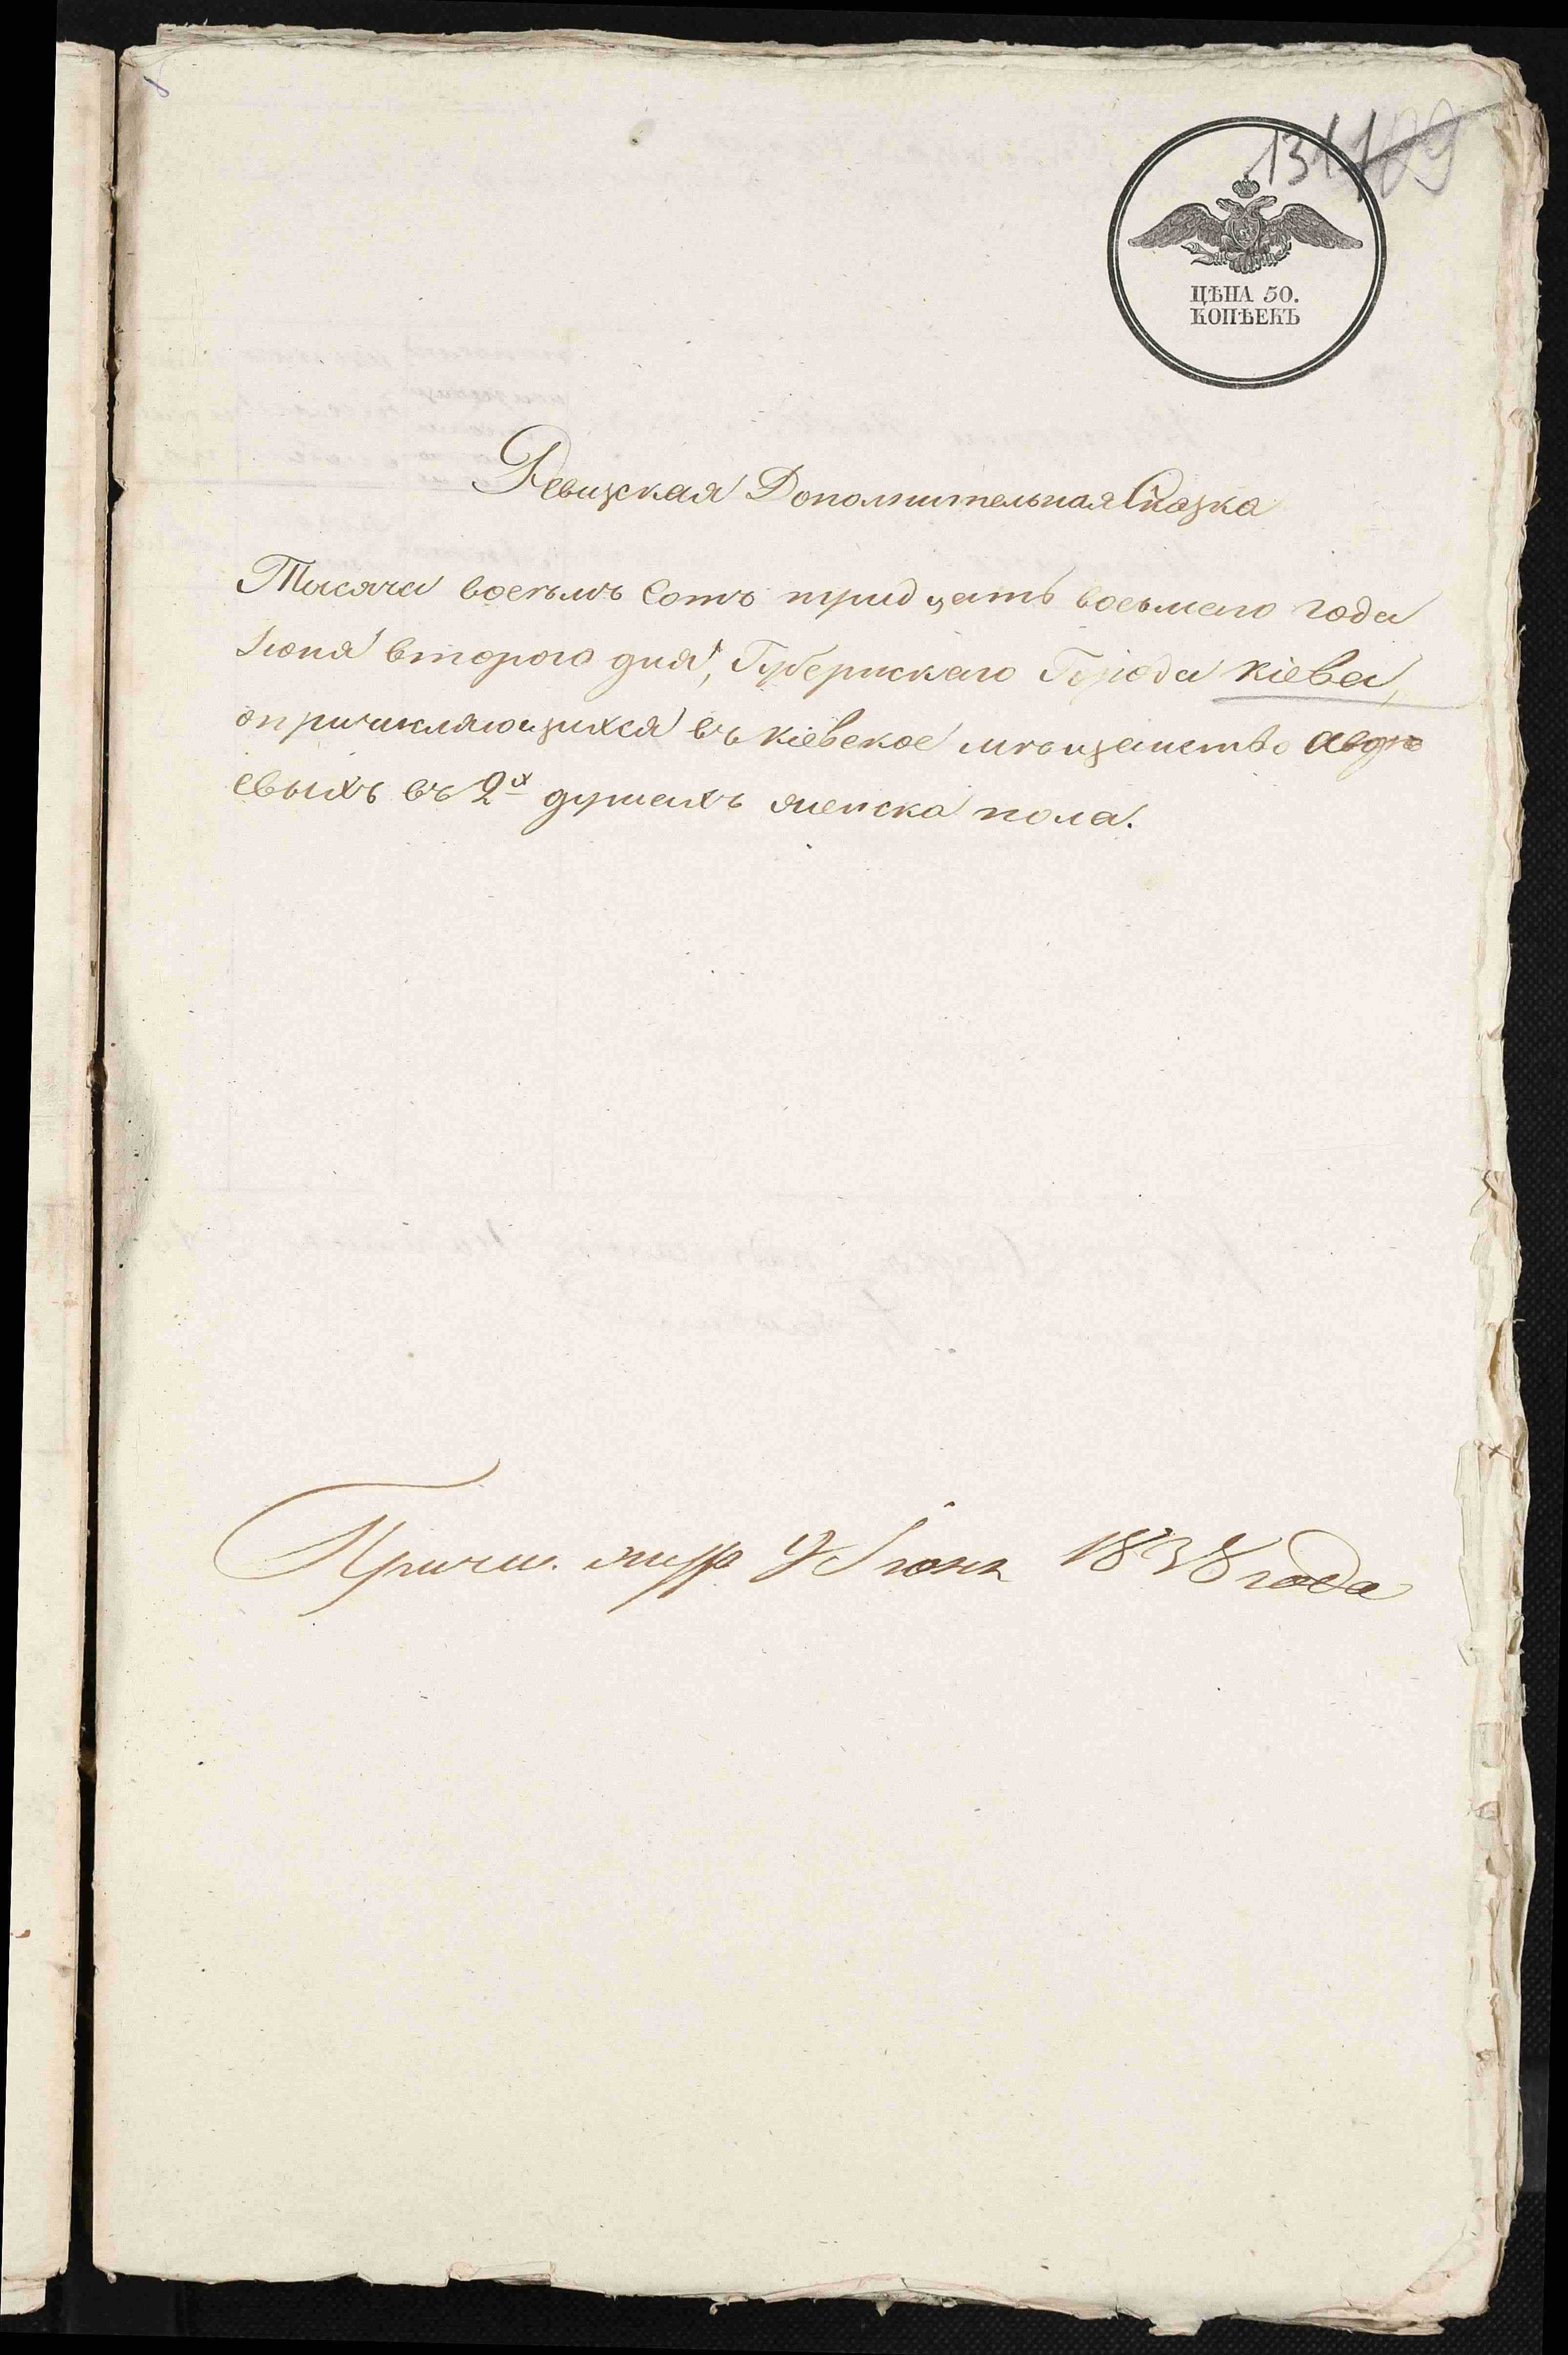 131 109
ЦѢНА 50.
КОПѢЕКЪ
Ревизская Дополнительная Сказка
Тысяча восемъ Сотъ тридцать восьмаго года
Іюня второго дня, Губернскаго Города Кіева,
о причисляющихся въ Кіевское мѣщанство Авдѣ
евыхъ въ 2х душахъ женска пола.
Причи. Іюня 1838 года